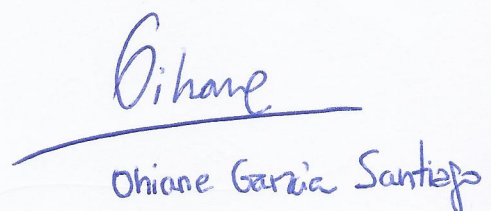 Oihane
Ohiane García Santiago